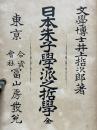 文學博士井上哲次郎著
日本朱子學派之哲學 全
東京 合資會社 冨山房發兌